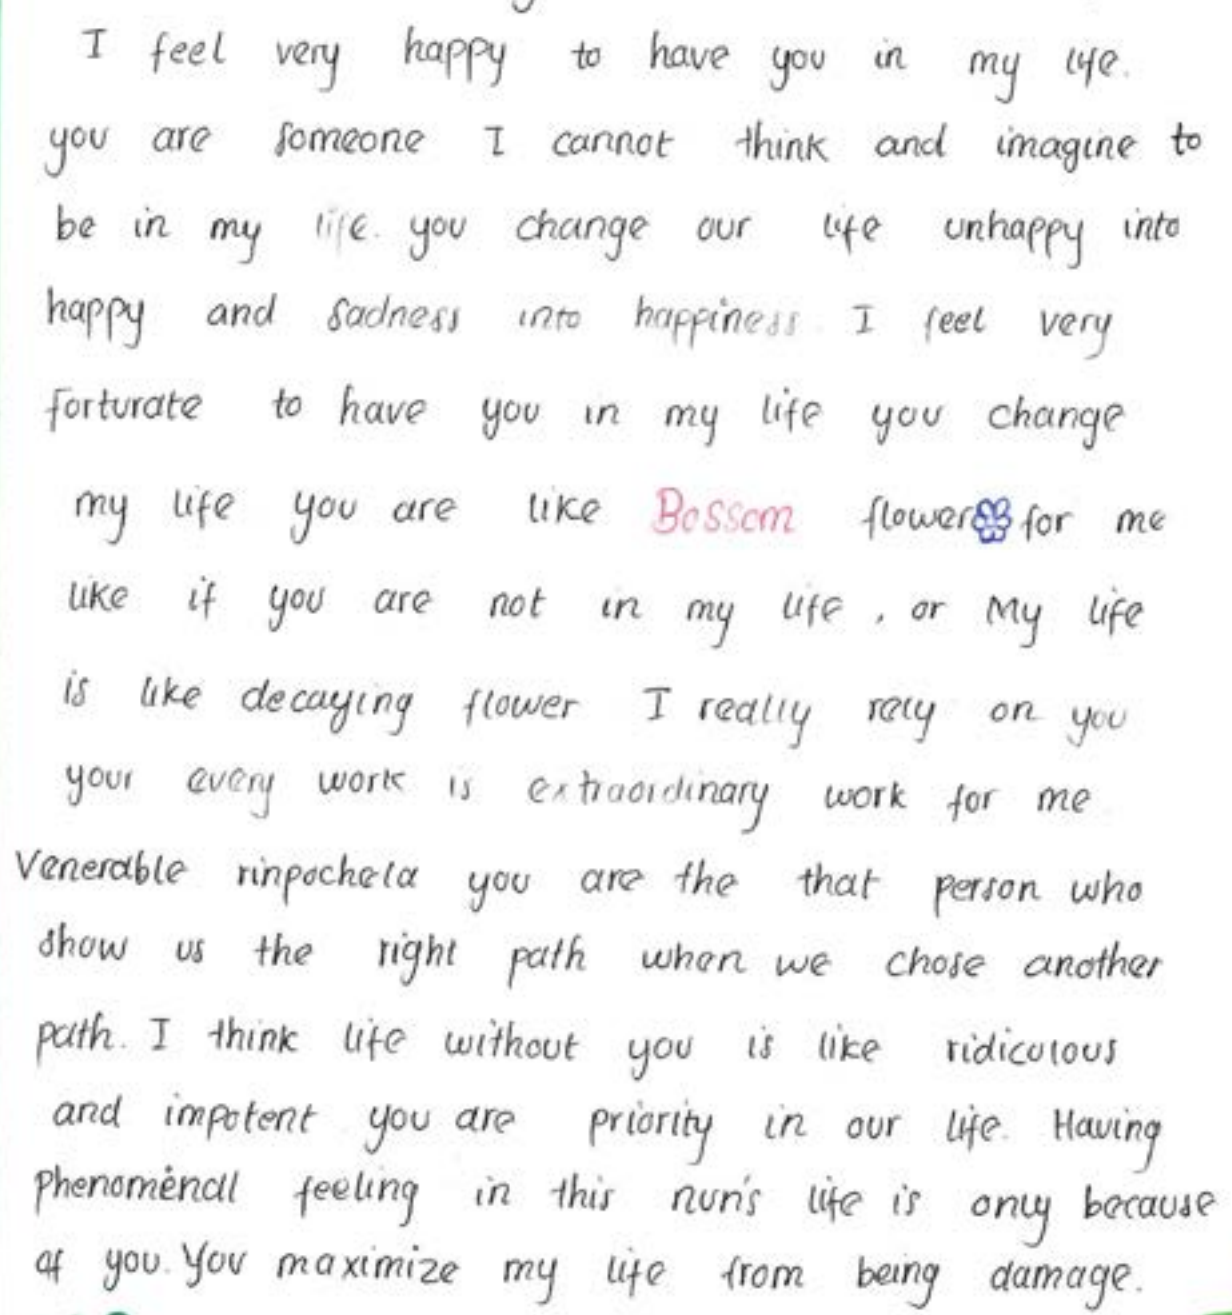 I feel very happy to have you in my life.
you are someone I cannot think and imagine to
be in my life. you change our life unhappy into
happy and sadness into happiness. I feel very
forturate to have you in my life you change
my life you are like Bossom flower for me
like if you are not in my life , or My life
is like decaying flower I really rely on you
your every work is extraordinary work for me
Venerable rinpochela you are the that person who
show us the right path when we chose another
path. I think life without you is like ridiculous
and impotent you are priority in our life. Having
phenomenall feeling in this nun's life is only because
of you. You maximize my life from being damage.